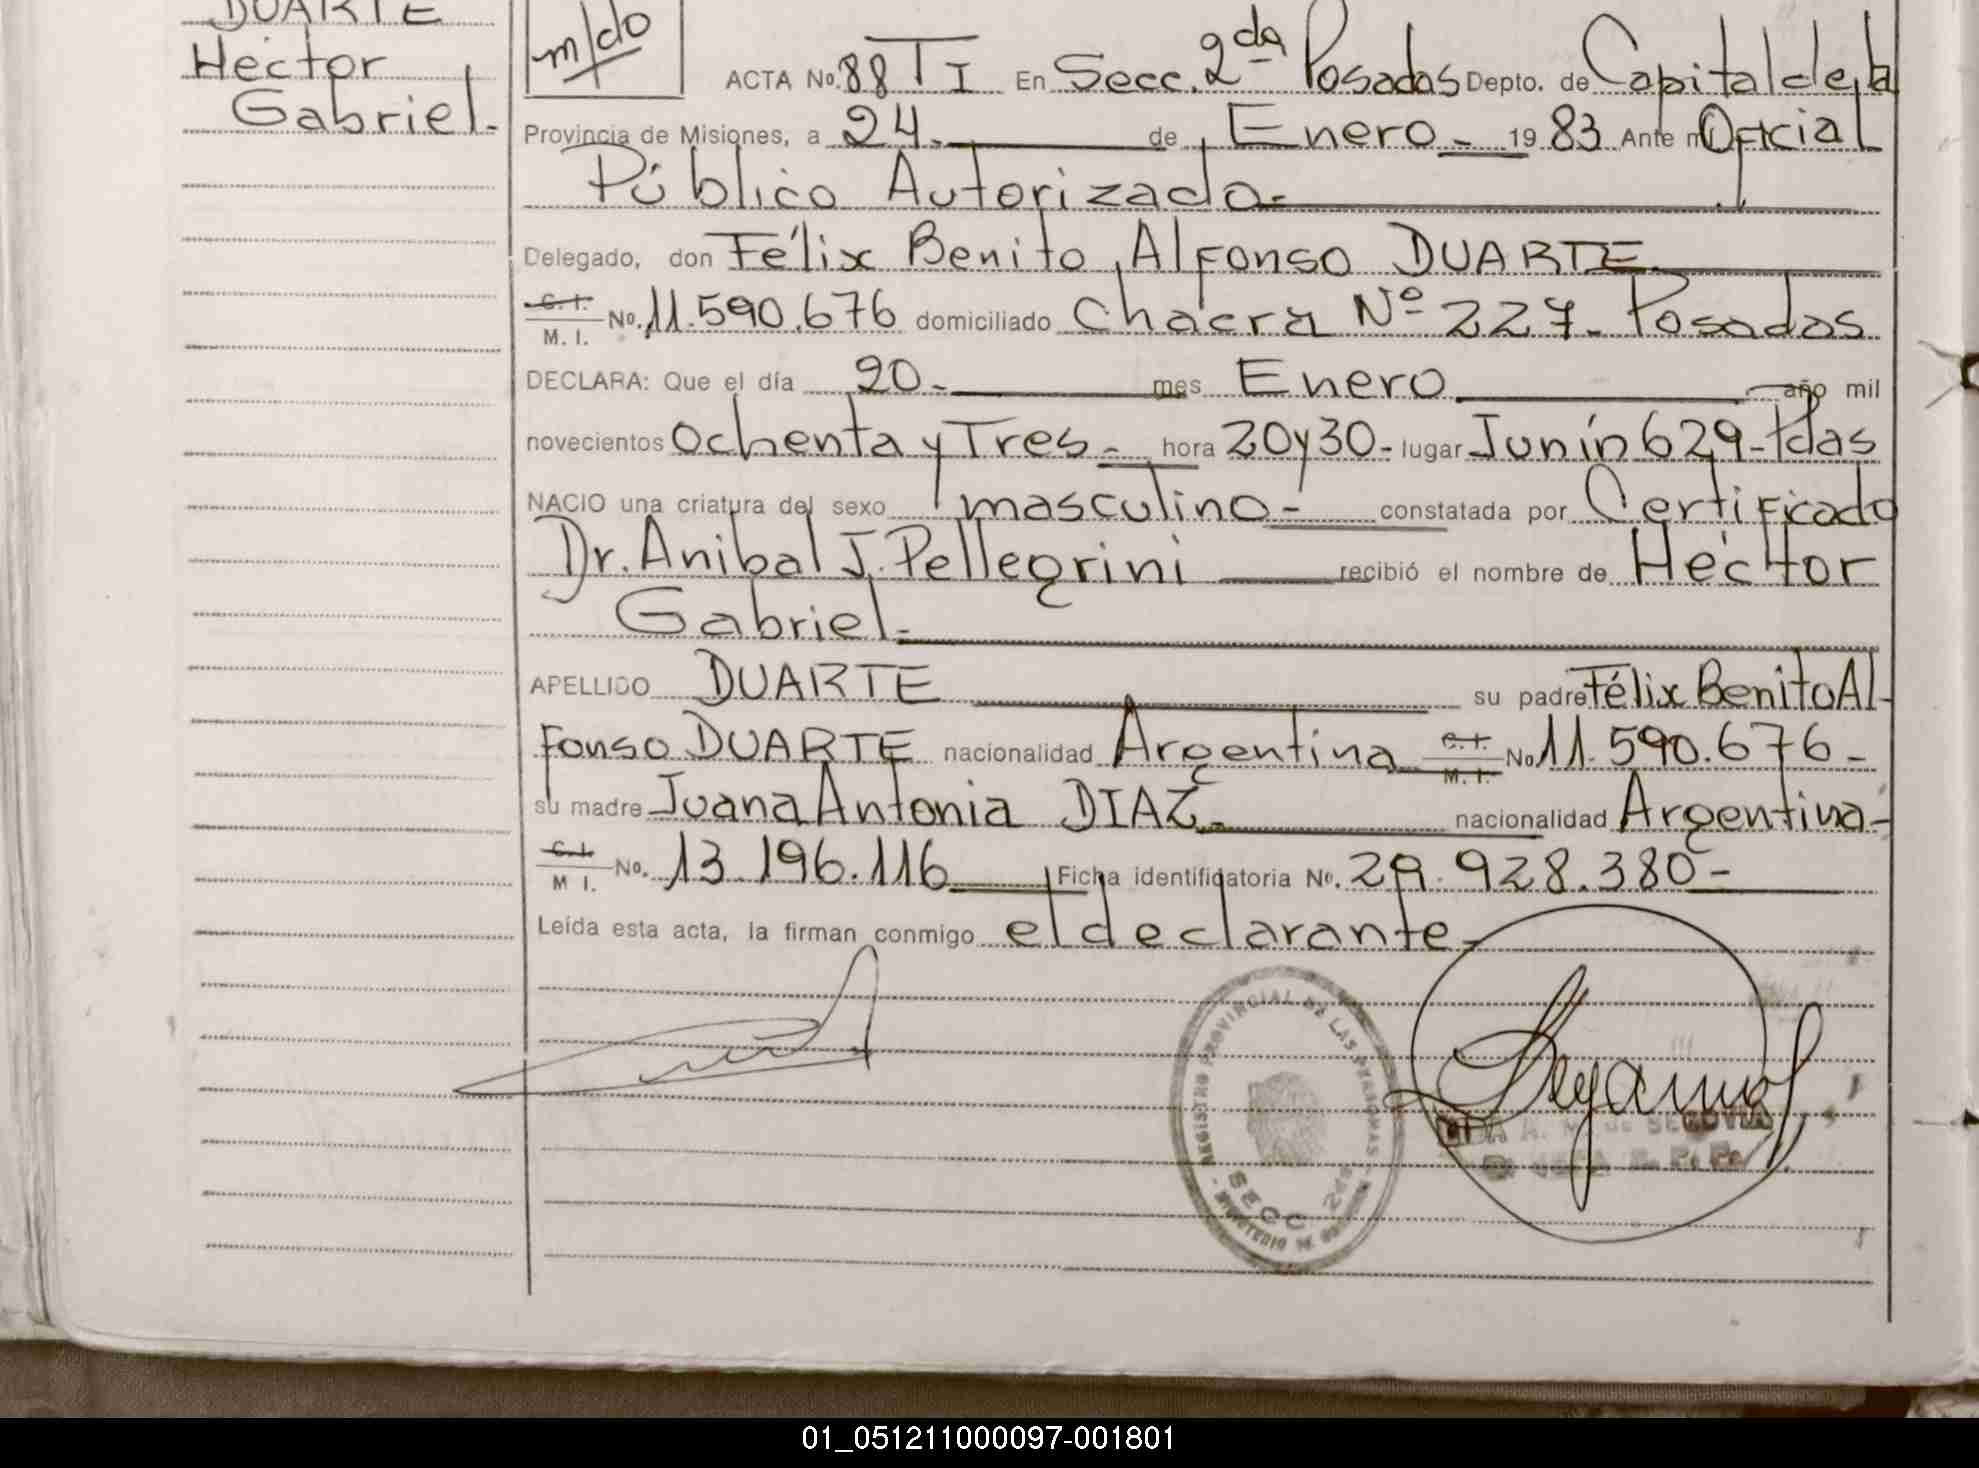 DUARTE
Héctor
Gabriel.-
m/do
ACTA No. 88 T I En Secc. 2da Posadas Depto. de Capital de la
Provincia de Misiones, a 24.- de Enero.- 19 83 Ante mí Oficial
Público Autorizado.-
Delegado, don Félix Benito Alfonso DUARTE.
C. I. / M. I. No. 11.590.676 domiciliado Chacra Nº 227.- Posadas
DECLARA: Que el día 20.- mes Enero año mil
novecientos Ochenta y Tres.- hora 20 y 30.- lugar Junín 629-Pdas
NACIO una criatura del sexo masculino.- constatada por Certificado
Dr. Anibal J. Pellegrini recibió el nombre de Héctor
Gabriel.-
APELLIDO DUARTE su padre Félix Benito Al-
fonso DUARTE nacionalidad Argentina C. I. / M. I. No 11.590.676-
su madre Juana Antonia DIAZ.- nacionalidad Argentina-
C. I. / M I. No. 13.196.116 Ficha identificatoria No. 29.928.380-
Leída esta acta, la firman conmigo el declarante.-
REGISTRO PROVINCIAL DE LAS PERSONAS
SECC. 2da
MINISTERIO DE
A. M. de SEGOVIA
01_051211000097-001801